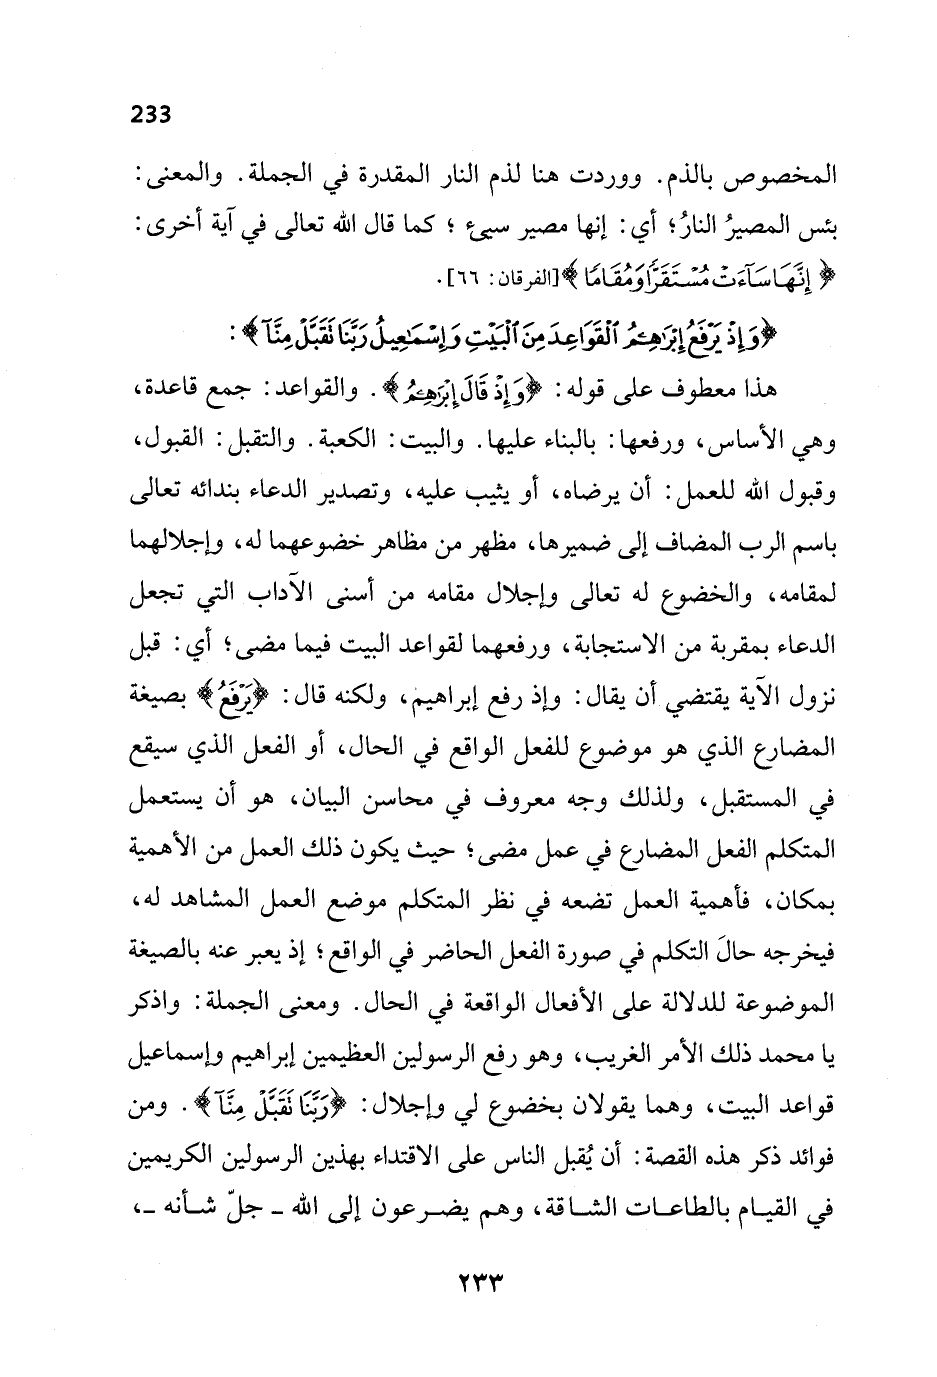 233
المخصوص بالذم. ووردت هنا لذم النار المقدرة في الجملة. والمعنى:
بئس المصيرُ النارُ؛ أي: إنها مصير سيئ؛ كما قال الله تعالى في آية أخرى:
﴿إِنَّهَا سَآءَتْ مُسْتَقَرًّا وَمُقَامًا﴾ [الفرقان: ٦٦].
﴿وَإِذْ يَرْفَعُ إِبْرَٰهِـۧمُ ٱلْقَوَاعِدَ مِنَ ٱلْبَيْتِ وَإِسْمَـٰعِيلُ رَبَّنَا تَقَبَّلْ مِنَّآ﴾:
هذا معطوف على قوله: ﴿وَإِذْ قَالَ إِبْرَٰهِـۧمُ﴾. والقواعد: جمع قاعدة،
وهي الأساس، ورفعها: بالبناء عليها. والبيت: الكعبة. والتقبل: القبول،
وقبول الله للعمل: أن يرضاه، أو يثيب عليه، وتصدير الدعاء بندائه تعالى
باسم الرب المضاف إلى ضميرها، مظهر من مظاهر خضوعهما له، وإجلالهما
لمقامه، والخضوع له تعالى وإجلال مقامه من أسنى الآداب التي تجعل
الدعاء بمقربة من الاستجابة، ورفعهما لقواعد البيت فيما مضى؛ أي: قبل
نزول الآية يقتضي أن يقال: وإذ رفع إبراهيم، ولكنه قال: ﴿يَرْفَعُ﴾ بصيغة
المضارع الذي هو موضوع للفعل الواقع في الحال، أو الفعل الذي سيقع
في المستقبل، ولذلك وجه معروف في محاسن البيان، هو أن يستعمل
المتكلم الفعل المضارع في عمل مضى؛ حيث يكون ذلك العمل من الأهمية
بمكان، فأهمية العمل تضعه في نظر المتكلم موضع العمل المشاهد له،
فيخرجه حالَ التكلم في صورة الفعل الحاضر في الواقع؛ إذ يعبر عنه بالصيغة
الموضوعة للدلالة على الأفعال الواقعة في الحال. ومعنى الجملة: واذكر
يا محمد ذلك الأمر الغريب، وهو رفع الرسولين العظيمين إبراهيم وإسماعيل
قواعد البيت، وهما يقولان بخضوع لي وإجلال: ﴿رَبَّنَا تَقَبَّلْ مِنَّآ﴾. ومن
فوائد ذكر هذه القصة: أن يُقبل الناس على الاقتداء بهذين الرسولين الكريمين
في القيام بالطاعات الشاقة، وهم يضرعون إلى الله ـ جلّ شأنه ـ،
٢٣٣